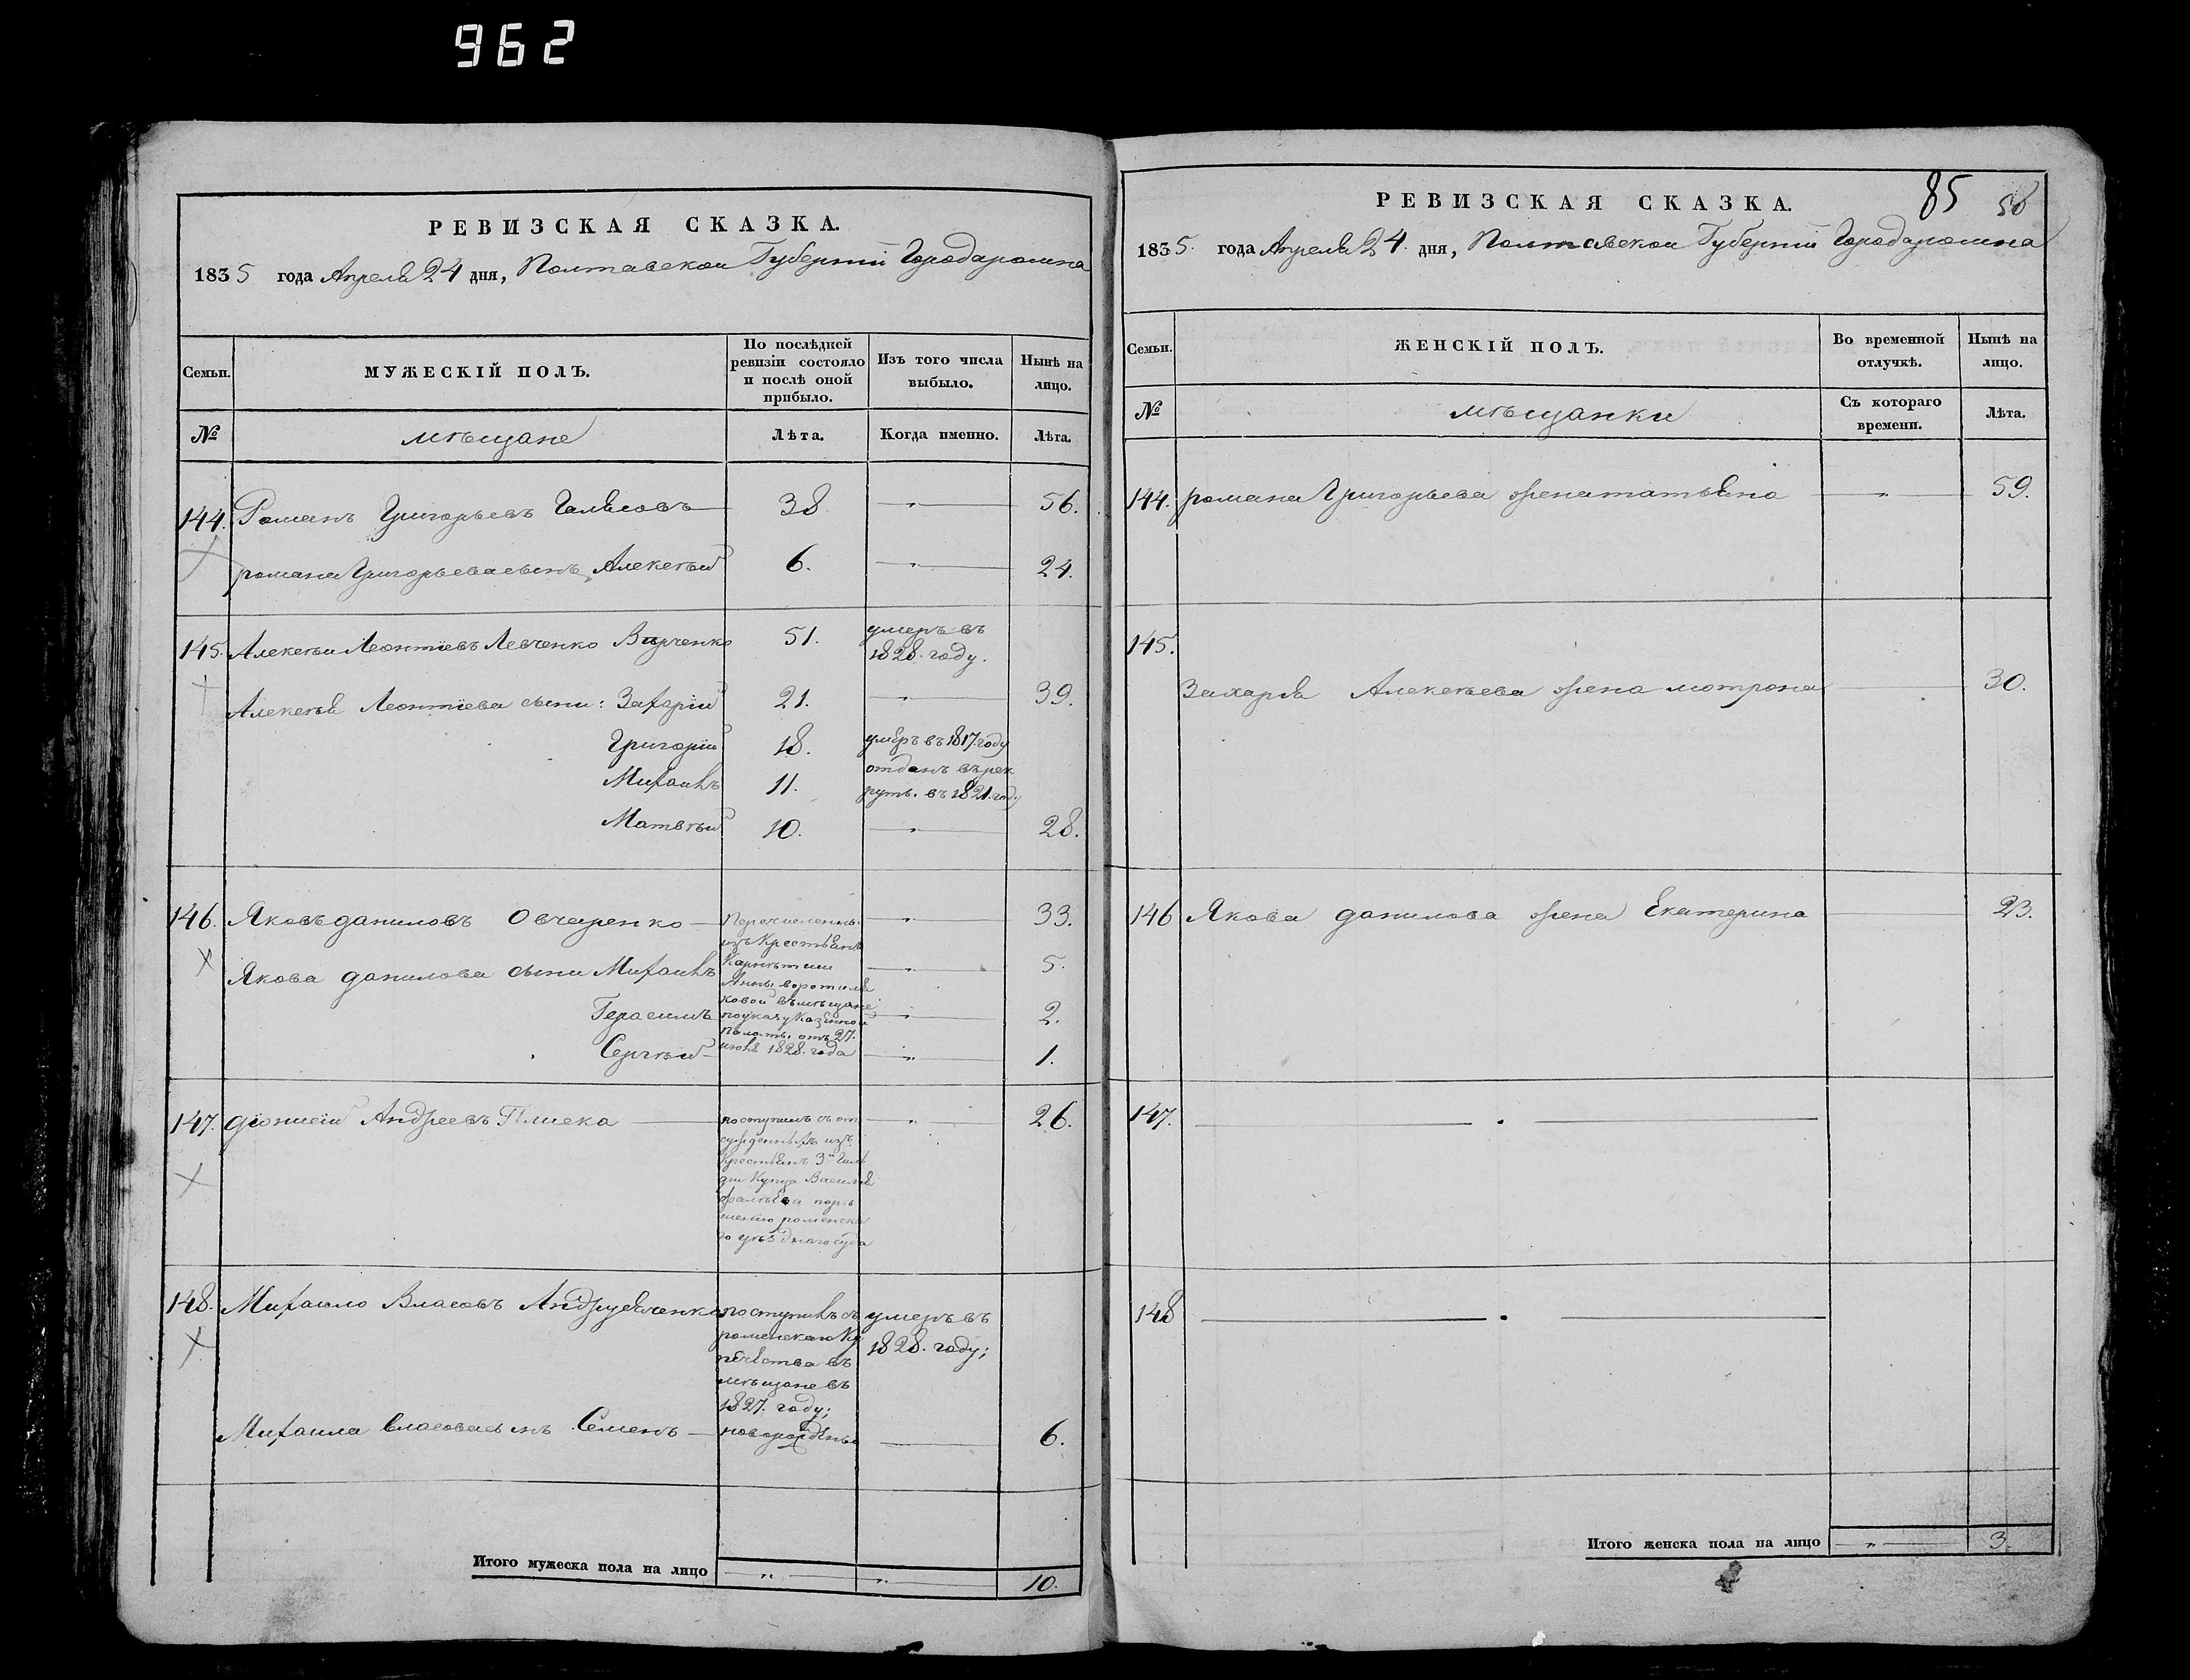 962
РЕВИЗСКАЯ СКАЗКА.
1835 года Апреля 24 дня, Полтавской Губернии Города ромна
Семьи.
МУЖЕСКІЙ ПОЛЪ.
По послѣдней
ревизіи состояло
и послѣ оной
прибыло.
Изъ того числа
выбыло.
Нынѣ на
лицо.
№
мѣщане
Лѣта.
Когда именно.
Лѣта.
144. Романъ Григорьевъ 38 — 56.
романа Григорьева сынъ Алексѣй 6. — 24.
145. Алексѣй Леонтіевъ Левченко 51. умеръ въ
1828. году.
Алексѣя Леонтіева сыни: Захарій 21. — 39.
Григорій 18. умеръ въ 1817. году
Михаилъ 11. отданъ въ рек
руты. въ 1821. году
Матвѣй 10. — 28.
146. Яковъ даниловъ Овчаренко — перечисленны — 33.
изъ крестьянъ
Якова данилова сыни Михаилъ — 5.
Анны воротиля
ковой въ мѣщане
Герасимъ по указу Казенной — 2.
Палаты. отъ 27.
Сергѣй — 1828. года — 1.
147. діонисій Андреевъ Плиска — поступилъ съ от — 26.
сужденныхъ изъ
крестьянъ 3й Гиль
діи Купца Василія
порѣ
шенію роменска
го уѣзднаго суда
148. Михаило Власовъ поступилъ съ умеръ въ
роменскаго Ку 1828. году;
печества въ
мѣщане въ
1827. году;
Михаила власова сынъ Семенъ — новорожденъ — 6.
Итого мужеска пола на лицо — „ — „ — 10.
85 58
РЕВИЗСКАЯ СКАЗКА.
1835. года Апреля 24. дня, Полтавской Губерніи Города ромна
Семьи.
ЖЕНСКІЙ ПОЛЪ.
Во временной
отлучкѣ.
Нынѣ на
лицо.
№
мѣщанки
Съ котораго
времени.
Лѣта.
144. романа Григорьева жена татьяна — „ — 59.
145.
Захарія Алексѣева жена мотрона — 30.
146 Якова данилова жена Екатерина — 23.
147. — . —
148 — . —
Итого женска пола на лицо — „ — 3.